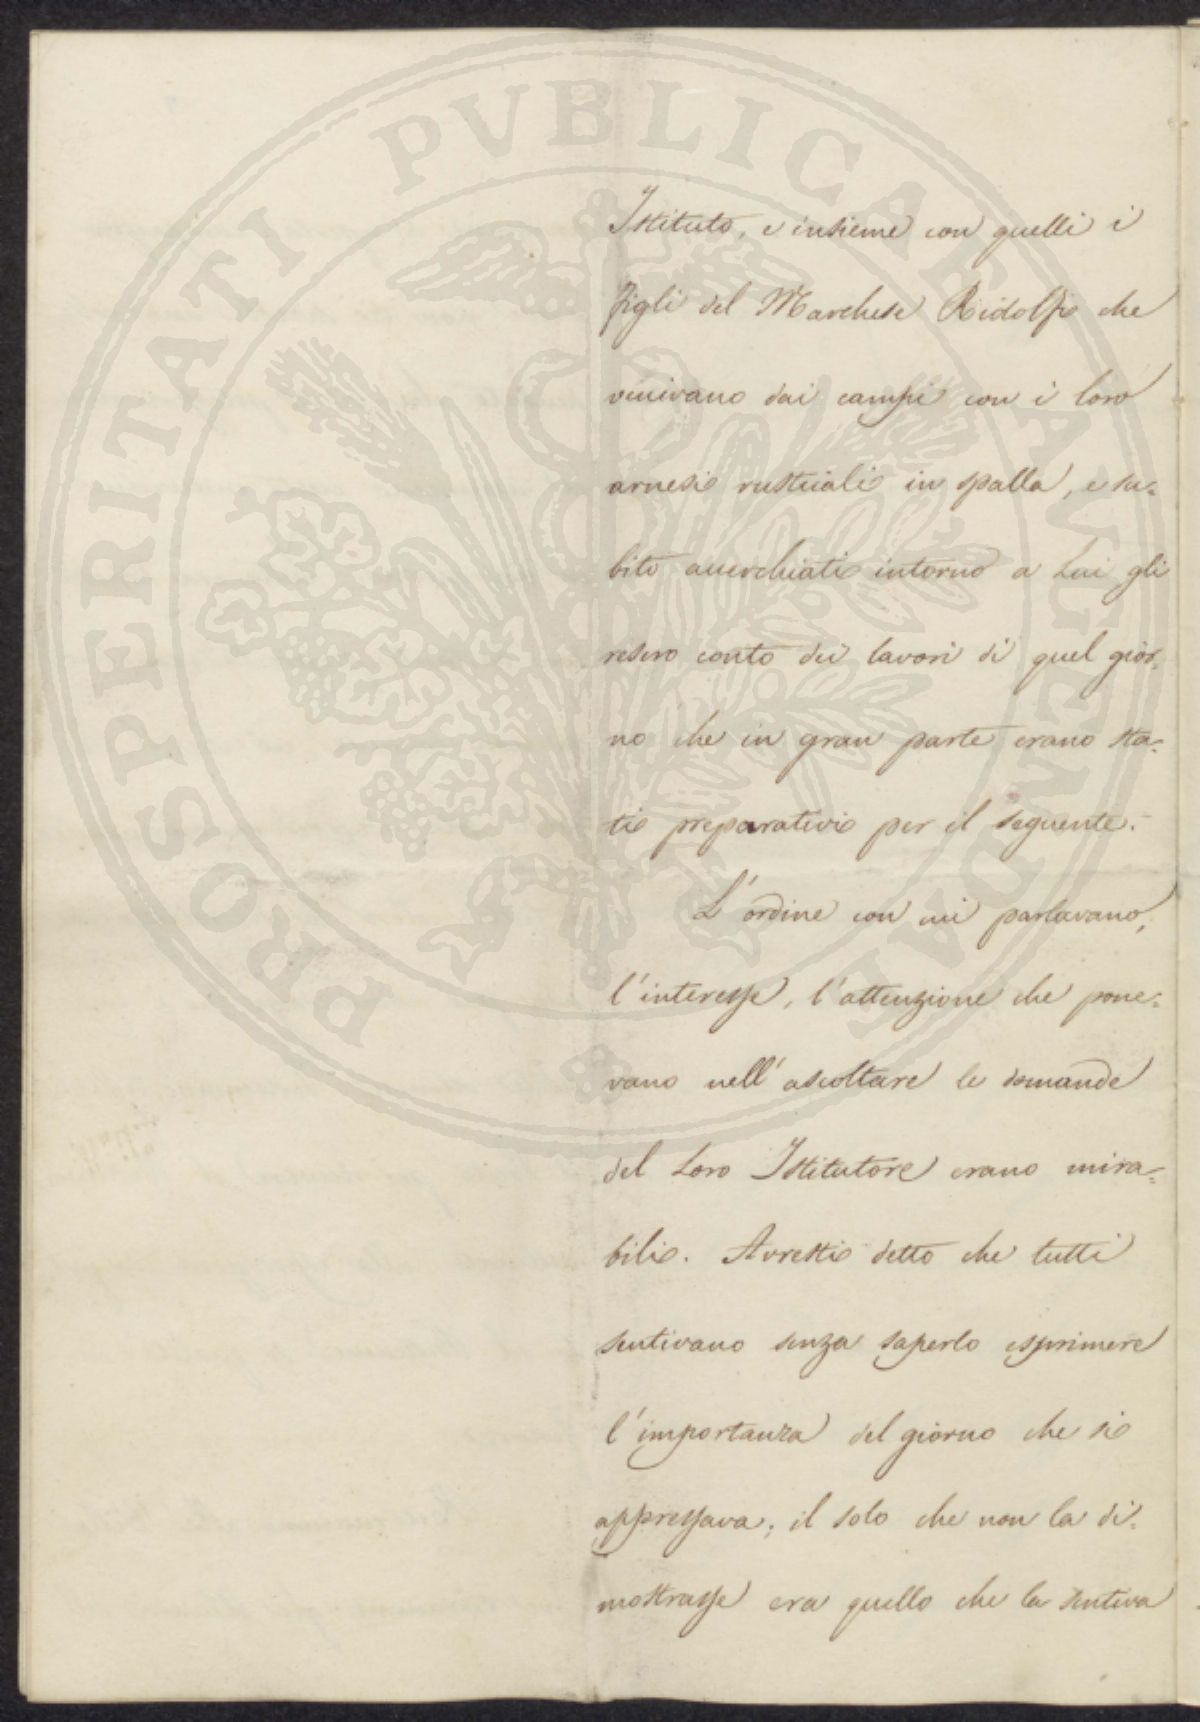 PROSPERITATI PVBLICAE AVGENDAE
Istituto, e insieme con quelli i
figli del Marchese Ridolfi che
venivano dai campi con i loro
arnesi rusticali in spalla, e su=
bito accerchiati intorno a Lui gli
resero conto dei lavori di quel gior=
no che in gran parte erano sta=
ti preparativi per il seguente.
L'ordine con cui parlavano,
l'interesse, l'attenzione che pone=
vano nell'ascoltare le domande
del Loro Istitutore erano mira=
bili. Avresti detto che tutti
sentivano senza saperlo esprimere
l'importanza del giorno che si
appressava; il solo che non la di=
mostrasse era quello che la sentiva